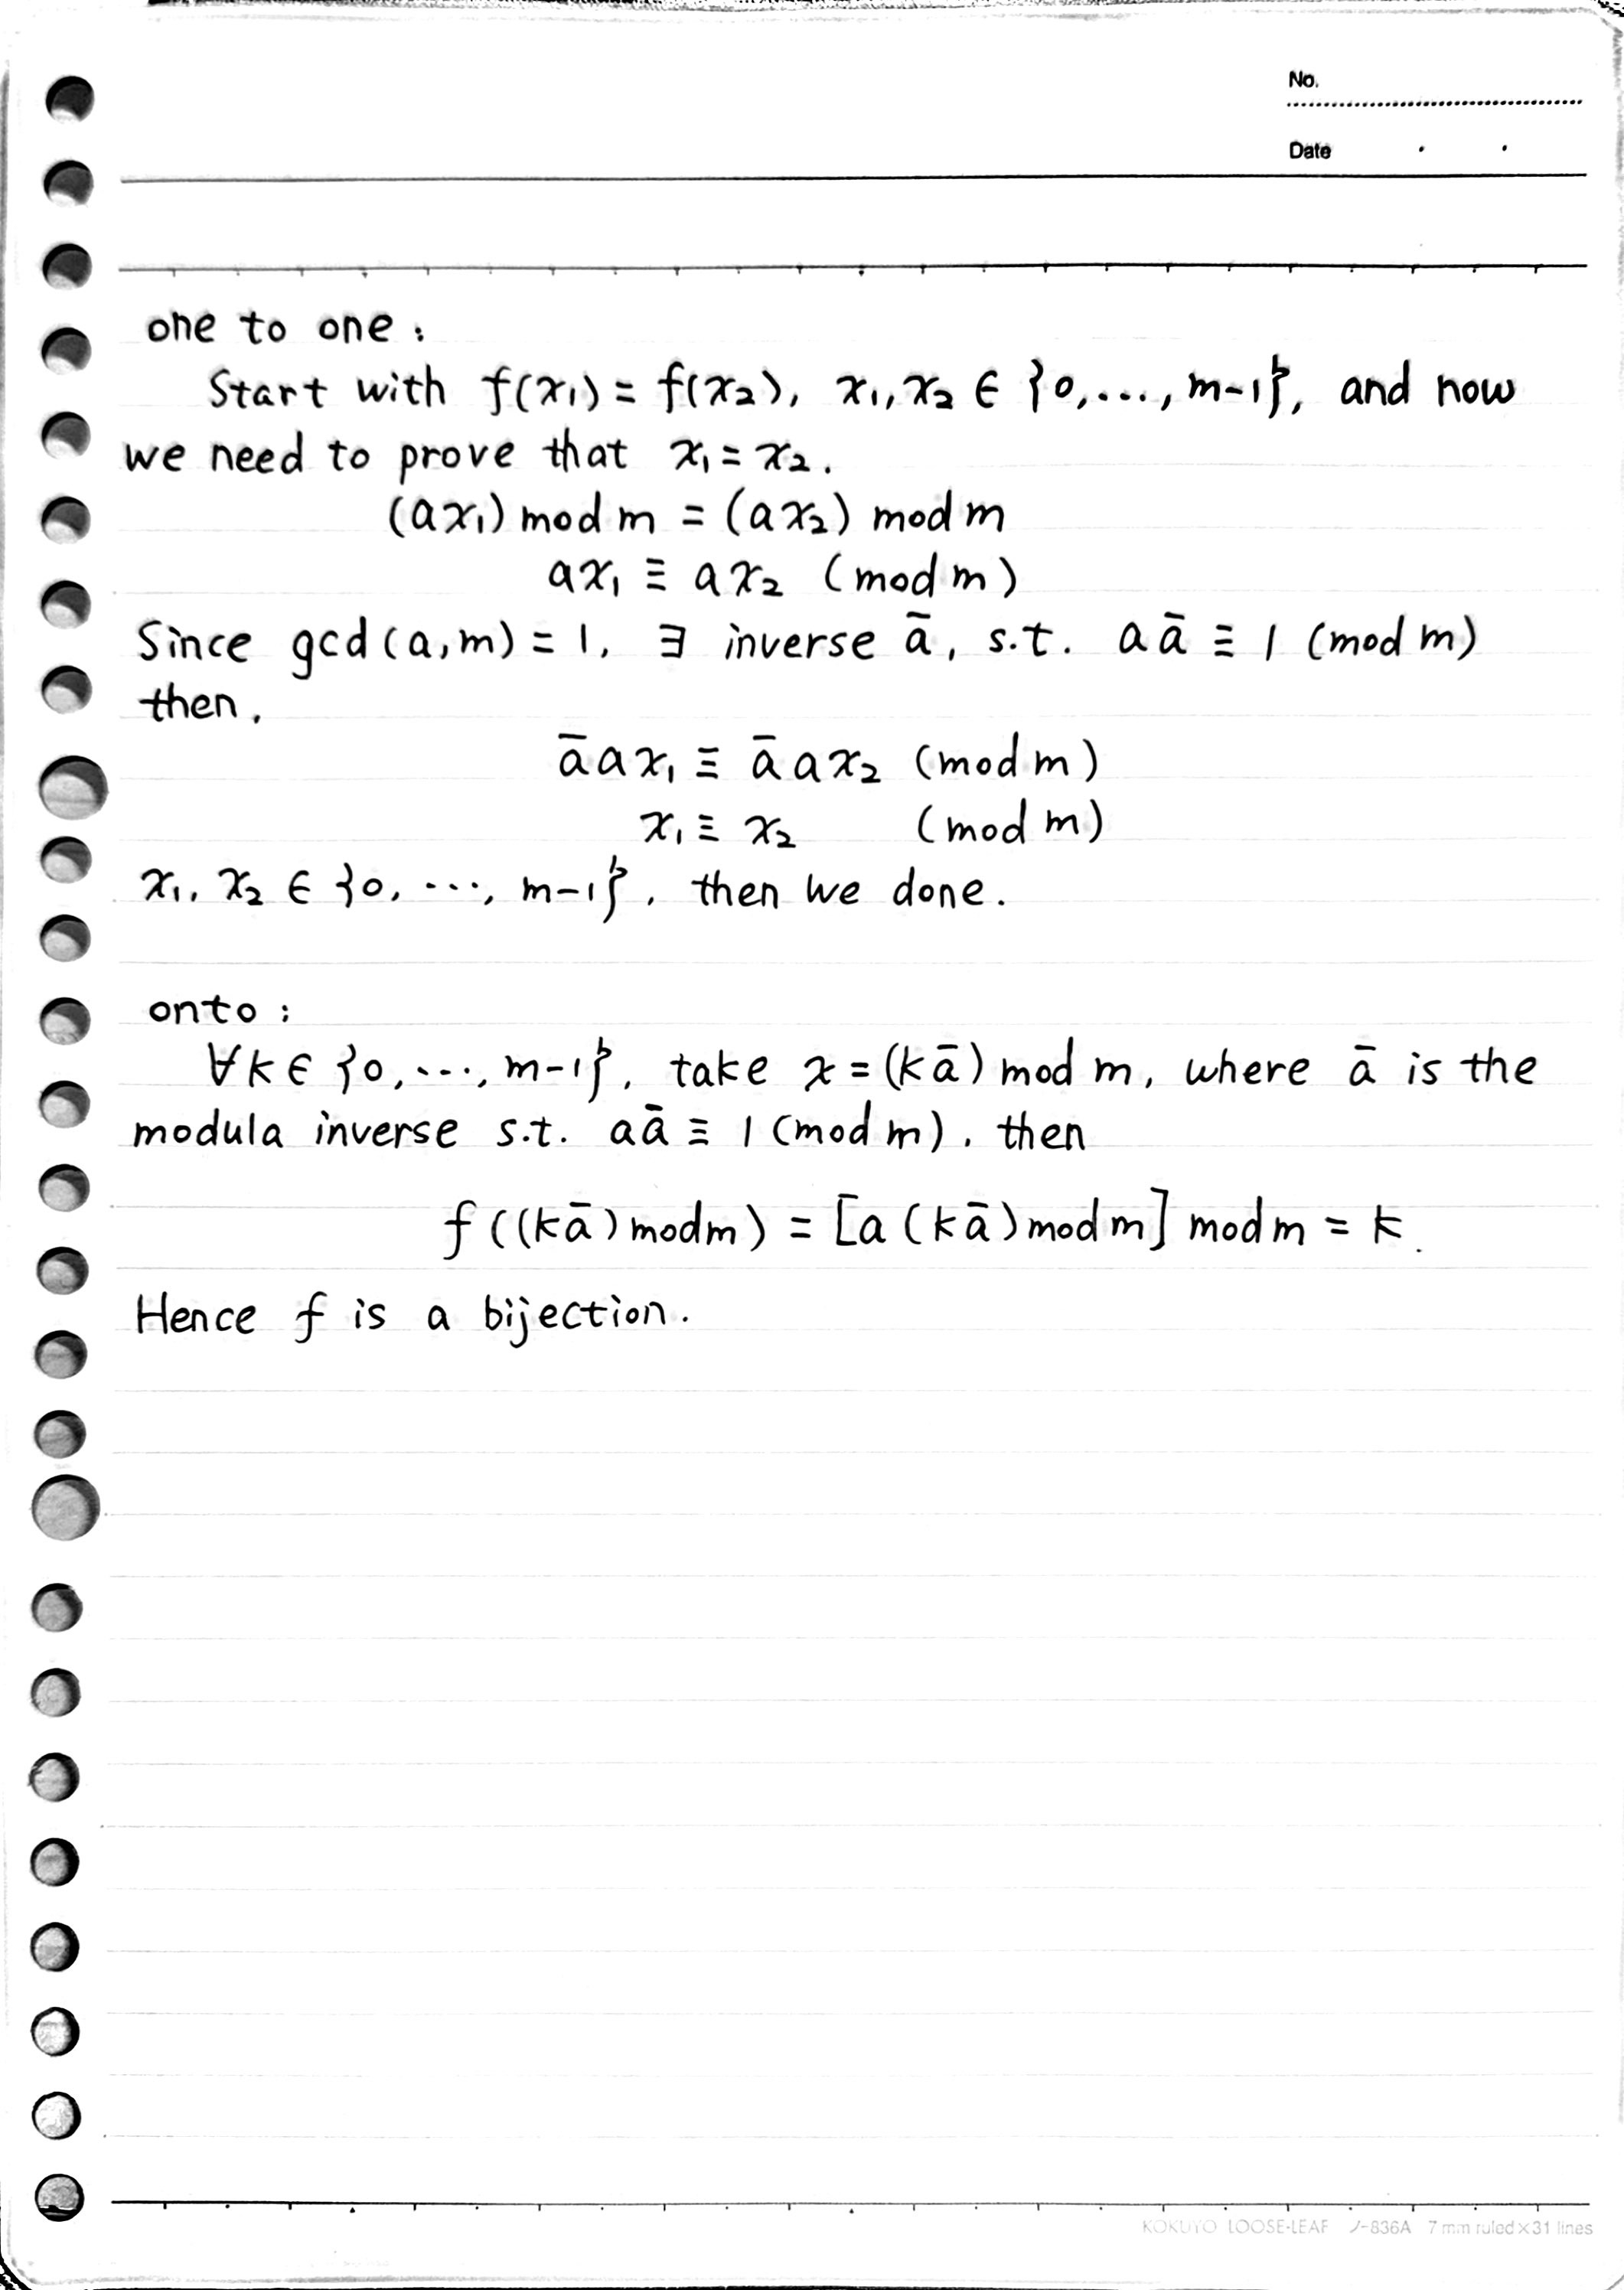 No.
Date . .
one to one :
Start with f(x₁) = f(x₂), x₁, x₂ ∈ {0, ..., m-1}, and now
we need to prove that x₁ = x₂.
(ax₁) mod m = (ax₂) mod m
ax₁ ≡ ax₂ (mod m)
Since gcd(a, m) = 1, ∃ inverse ā, s.t. aā ≡ 1 (mod m)
then,
āax₁ ≡ āax₂ (mod m)
x₁ ≡ x₂ (mod m)
x₁, x₂ ∈ {0, ..., m-1}, then we done.
onto :
∀k ∈ {0, ..., m-1}, take x = (kā) mod m, where ā is the
modula inverse s.t. aā ≡ 1 (mod m), then
f((kā) mod m) = [a(kā) mod m] mod m = k.
Hence f is a bijection.
KOKUYO LOOSE-LEAF ノ-836A 7 mm ruled×31 lines